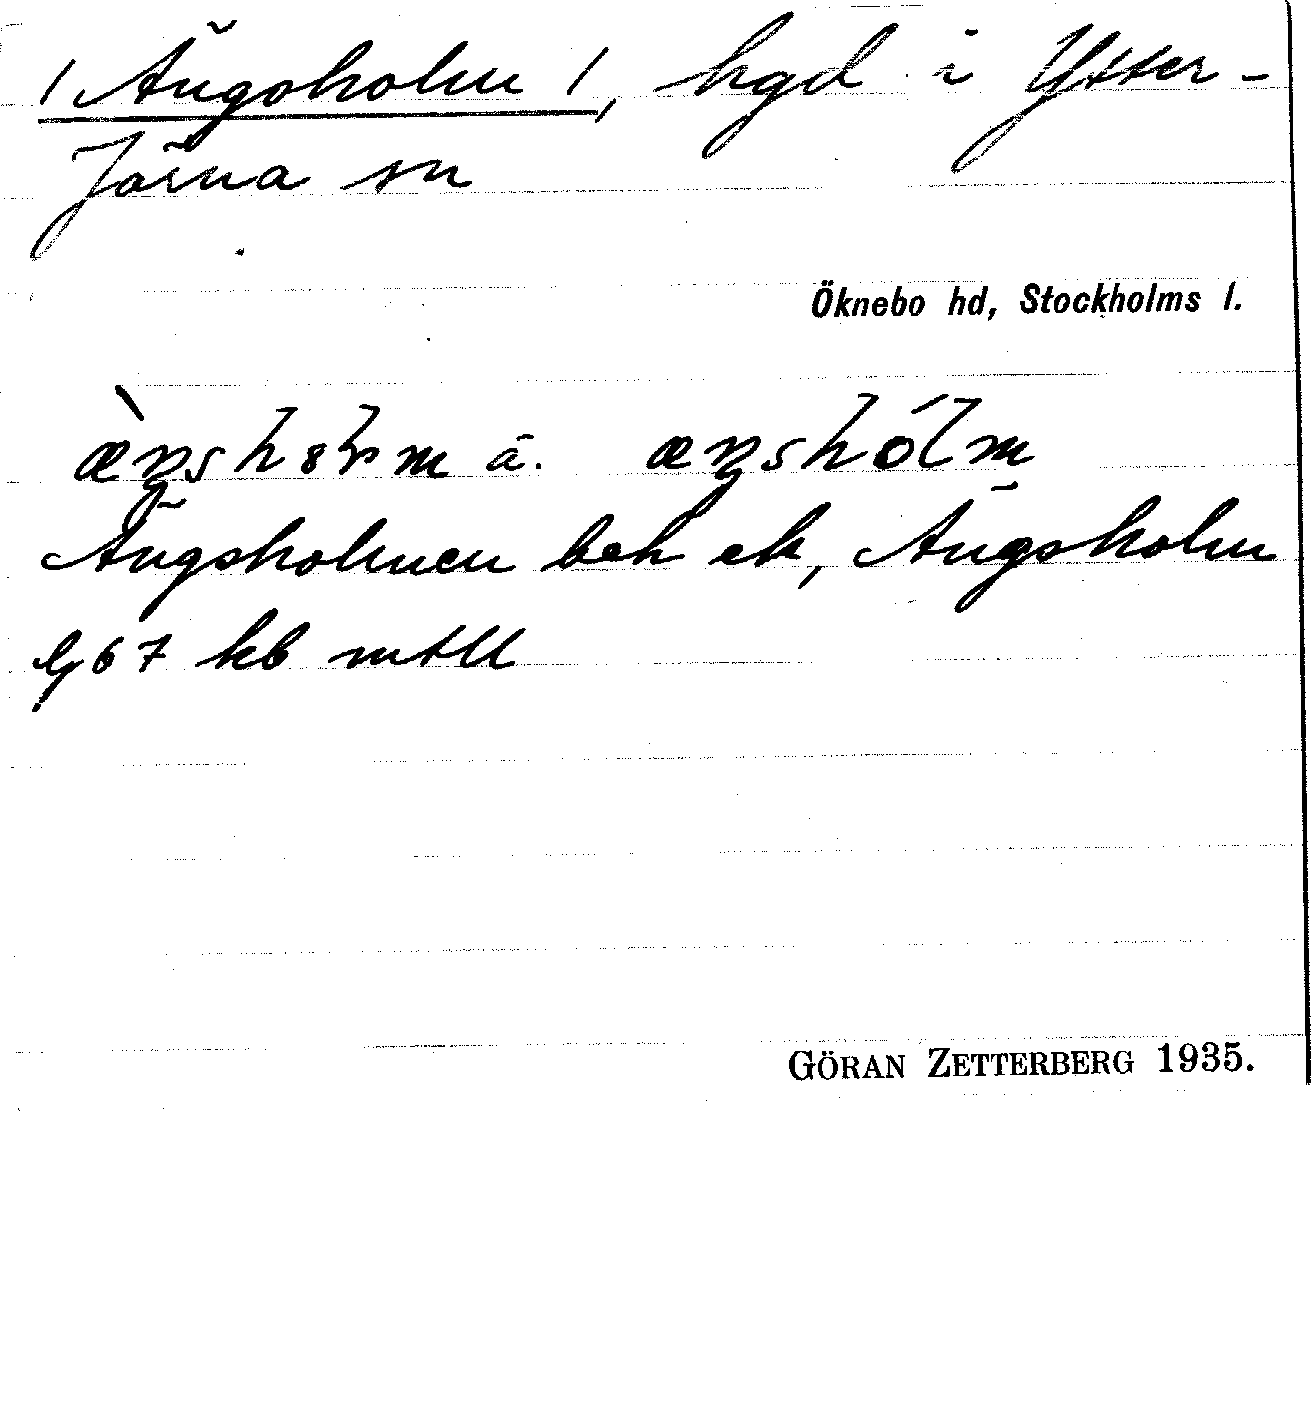 /Ängsholm/, hgd i Ytter-
Järna sn
Öknebo hd, Stockholms l.
Ängsholmen beh ek, Ängsholm
67 kb mtll
GÖRAN ZETTERBERG 1935.